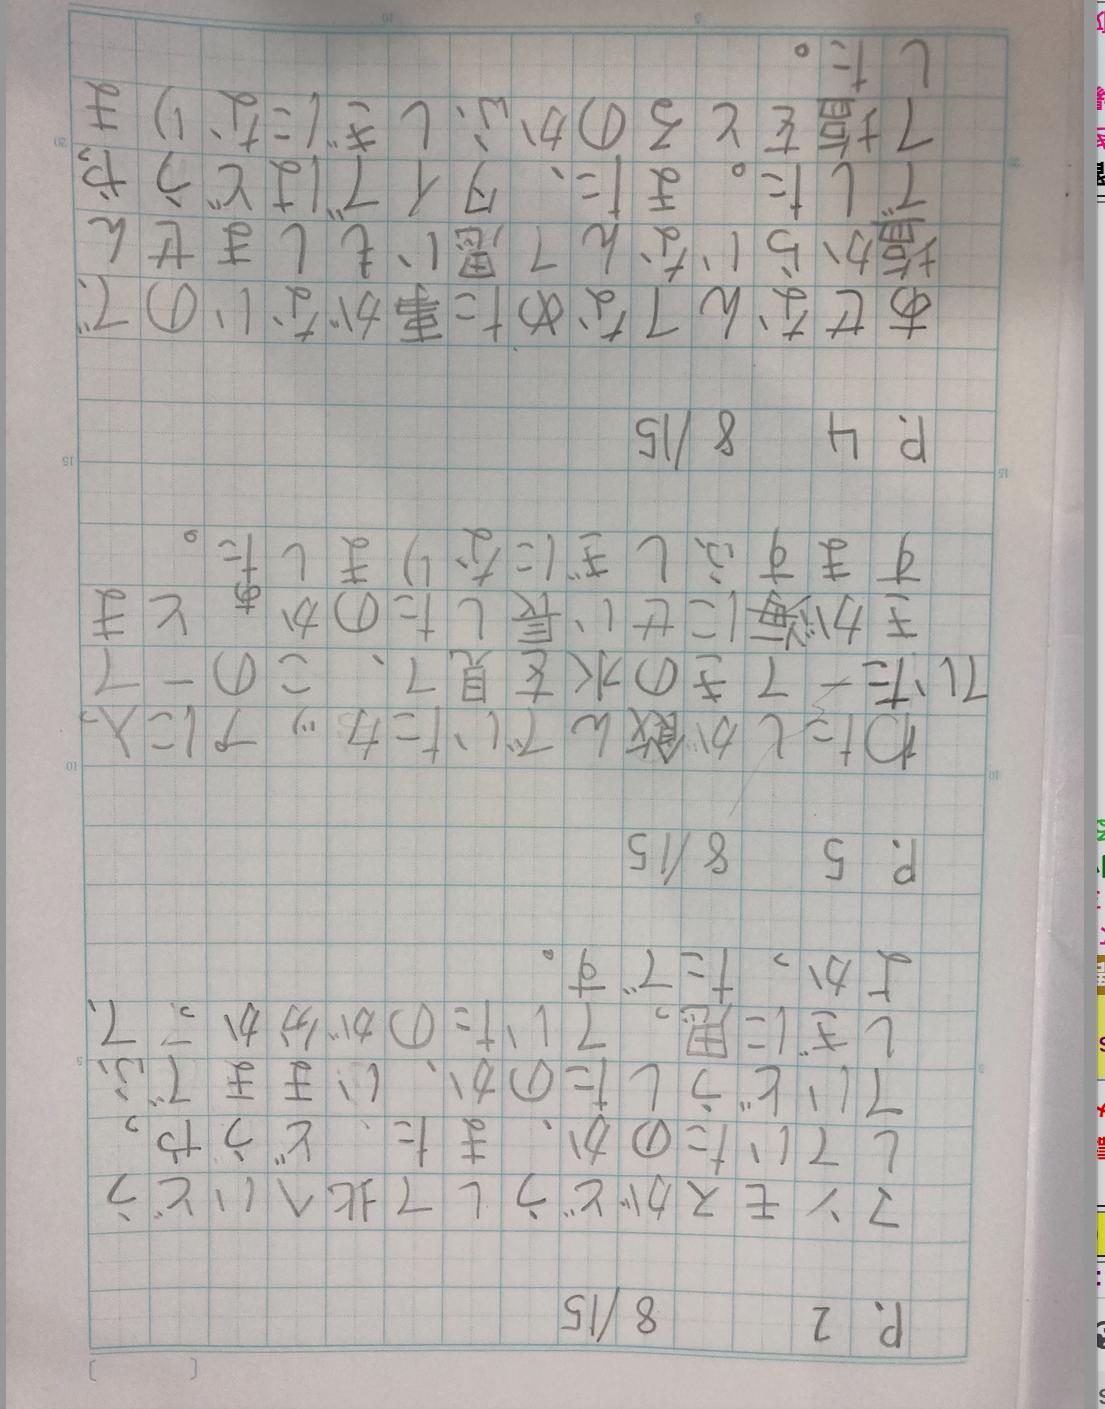 P. 2 8/15
マンモスがどうして北へいどう
していたのか、また、どうやっ
ていどうしたのか、いままでふ
しぎに思っていたのが分かって、
よかったです。
P. 5 8/15
わたしが飲んでいたカップに入
れた一てきの水を見て、この一て
きが海にせい長したのかあとま
すますふしぎになりました。
P. 4 8/15
あせなんてなめた事がないので、
塩からいなんて思いもしません
でした。また、タイではどうやっ
て塩をとるのかふしぎになりま
した。
5
10
15
20